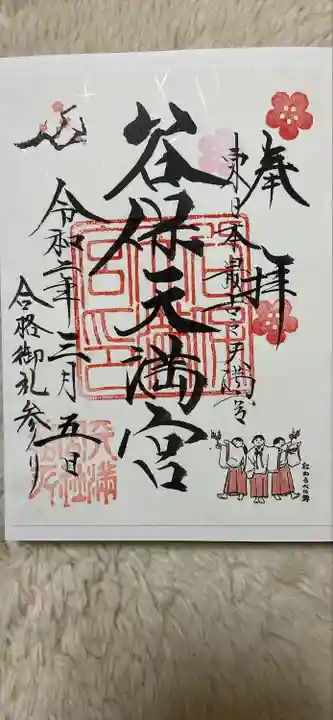 奉拝
東日本最古之天満宮
谷保天満宮
令和二年三月五日
合格御礼参り
紅わらべの舞